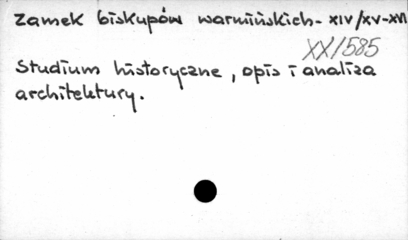 Zamek biskupów warmińskich - XIV/XV-XVI
XX/585
Studium historyczne, opis i analiza
architektury.